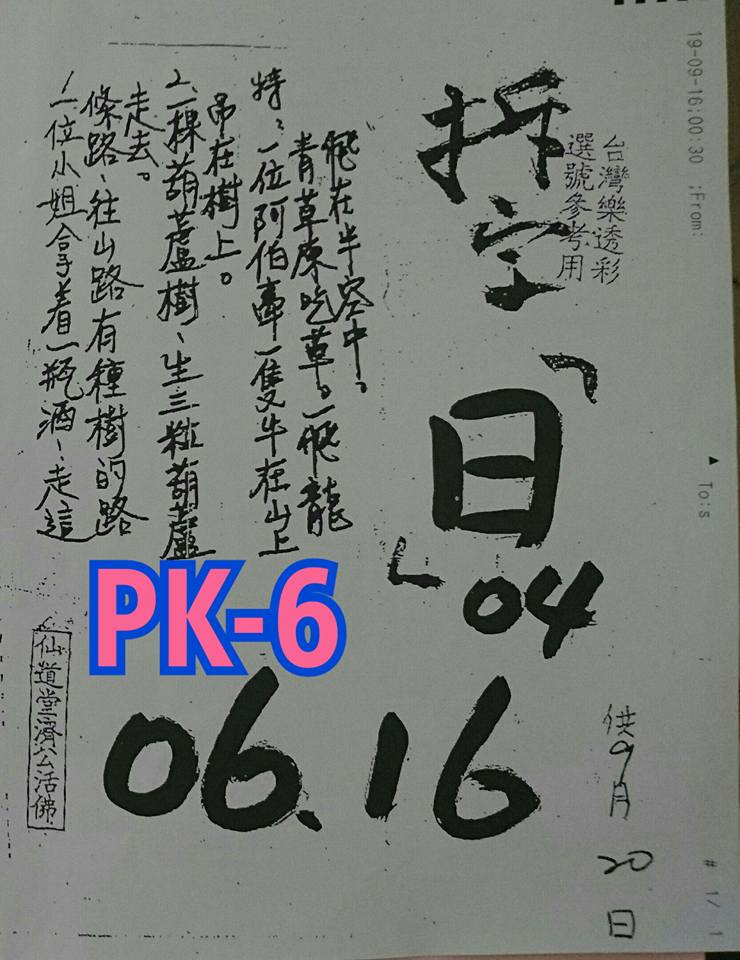 19-09-16;00:30 ;From:
▲ To:s
# 1/ 1
台灣樂透彩
選號參考用
拆字
「日」
04
06.16
供9月20日
1、一位小姐拿着一瓶酒、走這
條路、往山路有種樹的路
走去。
2、一棵葫蘆樹、生三粒葫蘆
吊在樹上。
特:一位阿伯牽一隻牛在山上
青草原吃草。一飛龍
飛在半空中。
PK-6
仙道堂濟公活佛